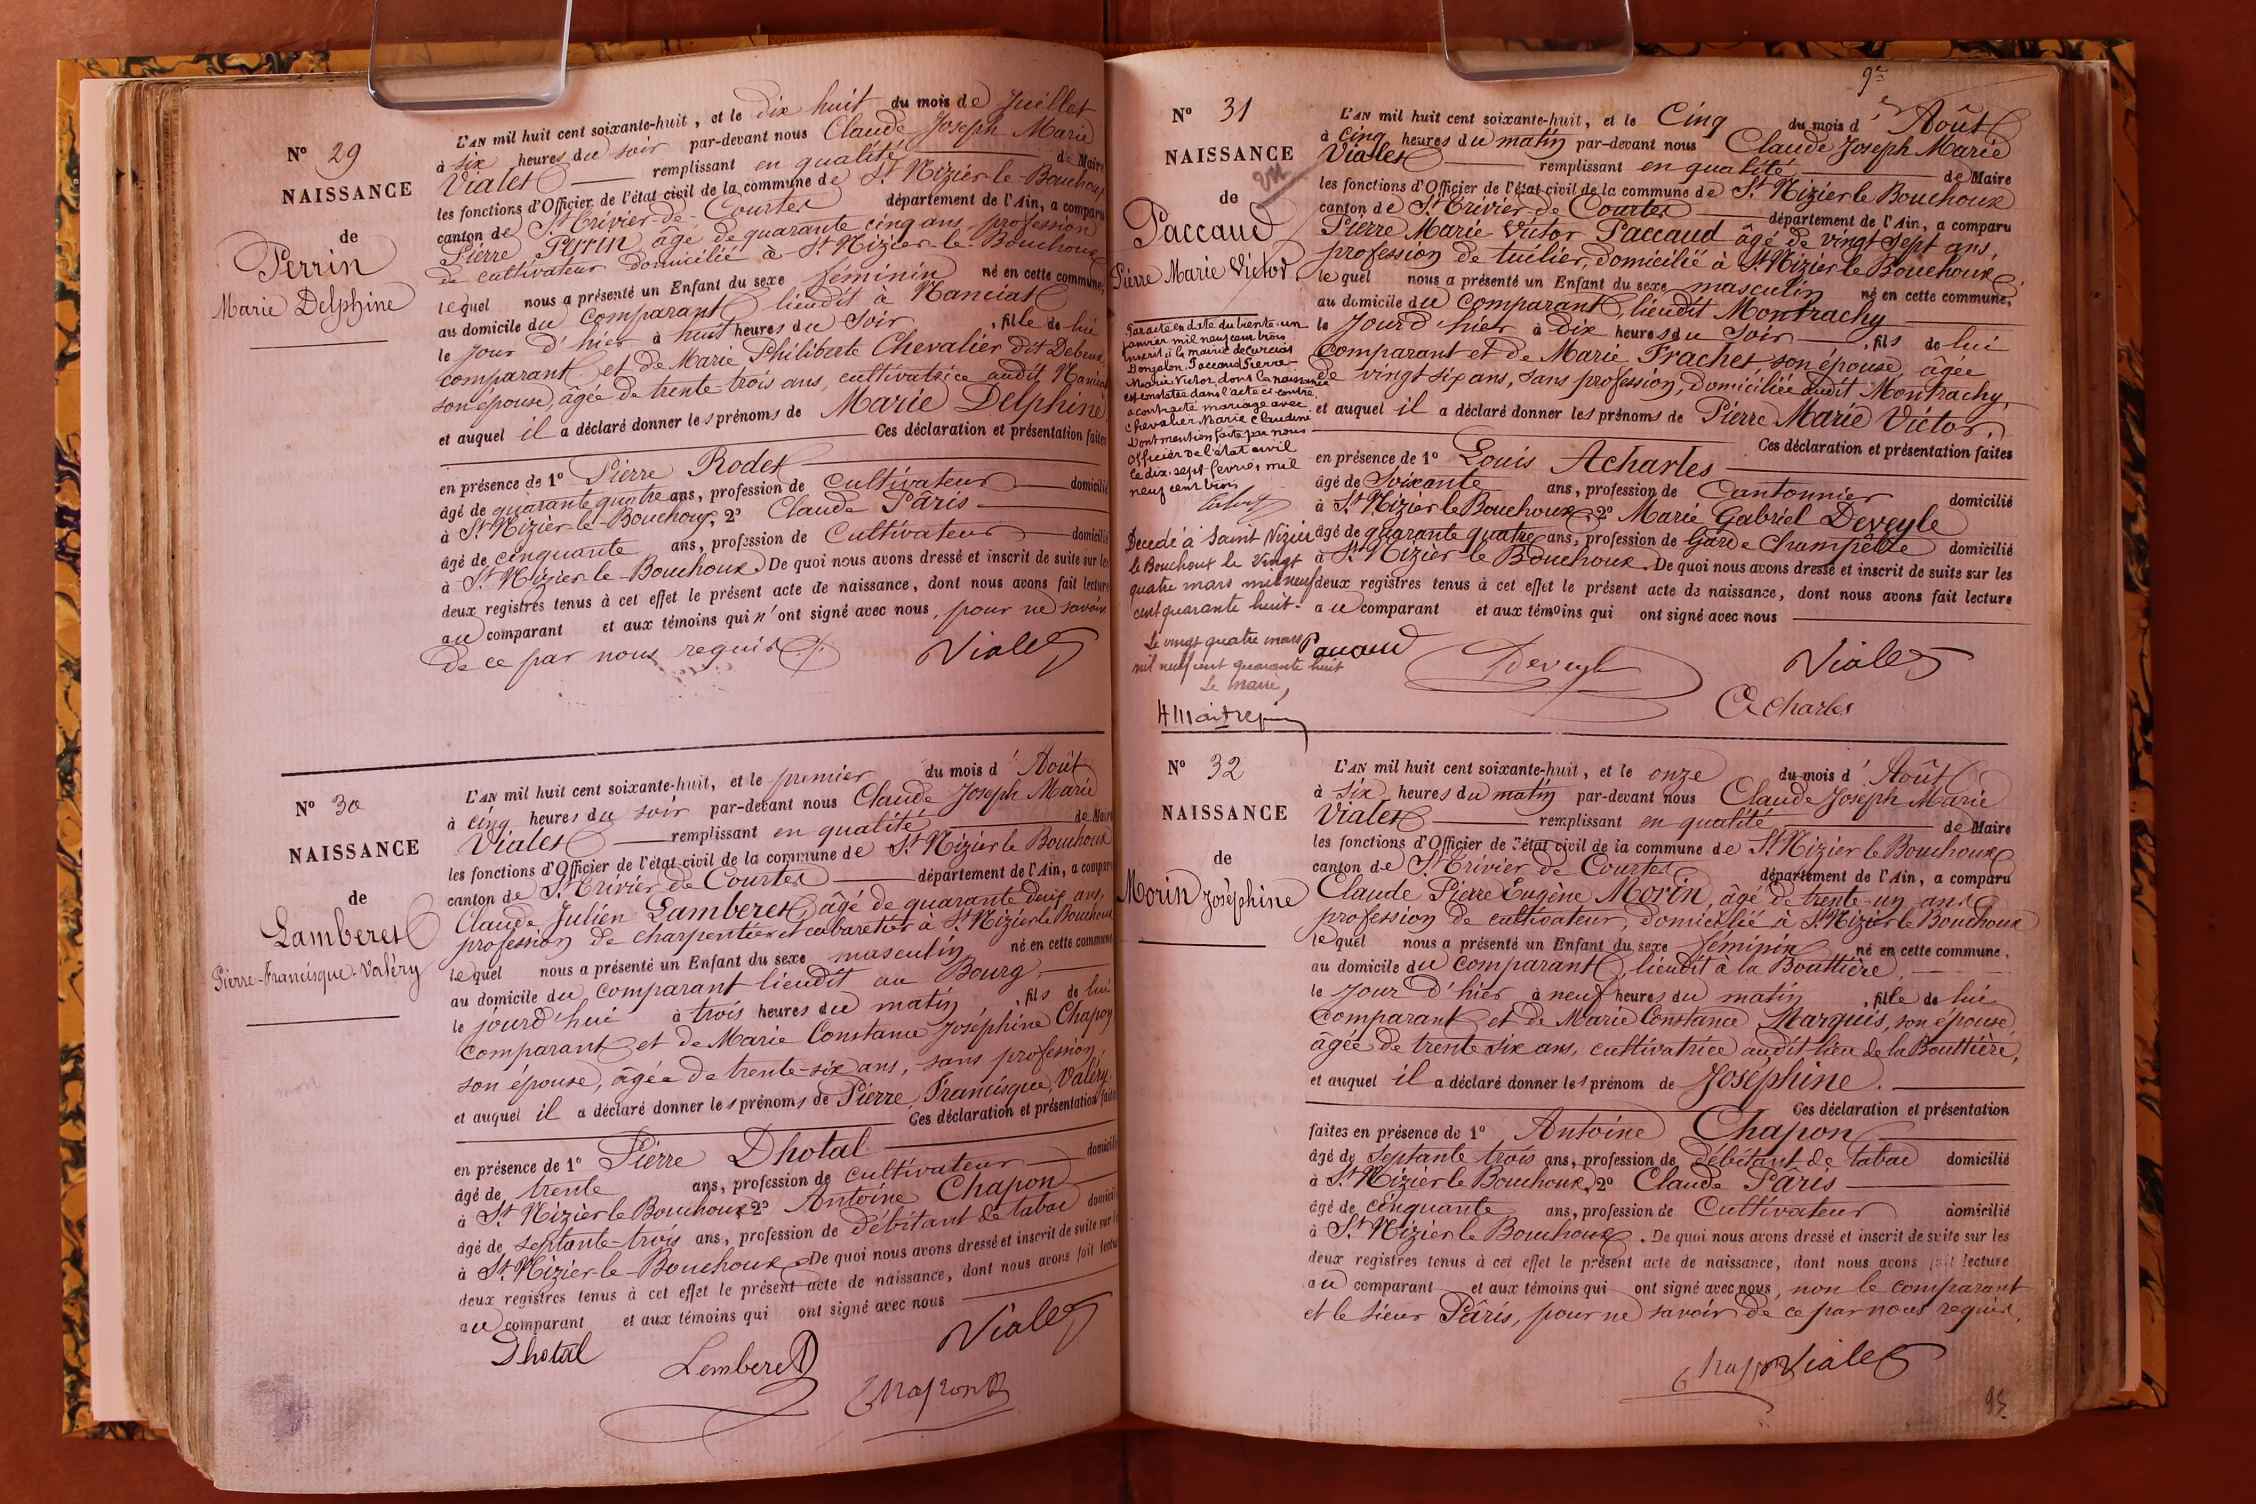 N° 29
NAISSANCE
de
Perrin
Marie Delphine
L'AN mil huit cent soixante-huit, et le dix huit du mois de Juillet
à six heures du soir par-devant nous Claude Joseph Marie
Vialet remplissant en qualité de Maire
les fonctions d'Officier de l'état civil de la commune de St Nizier-le-Bouchoux
canton de St Trivier-de-Courtes département de l'Ain, a comparu
Pierre Perrin âgé de quarante cinq ans, profession
de cultivateur domicilié à St Nizier-le-Bouchoux
lequel nous a présenté un Enfant du sexe féminin né en cette commune,
au domicile du comparant lieudit à Manciat
le jour d'hier à huit heures du soir, fille de lui
comparant et de Marie Philiberte Chevalier dit
son épouse, âgée de trente-trois ans, cultivatrice audit
et auquel il a déclaré donner les prénoms de Marie Delphine
Ces déclaration et présentation faites
en présence de 1° Pierre Rodet
âgé de quarante quatre ans, profession de cultivateur domicilié
à St Nizier-le-Bouchoux, 2° Claude Pâris
âgé de cinquante ans, profession de Cultivateur domicilié
à St Nizier-le-Bouchoux. De quoi nous avons dressé et inscrit de suite sur les
deux registres tenus à cet effet le présent acte de naissance, dont nous avons fait lecture
au comparant et aux témoins qui n'ont signé avec nous, pour ne savoir
de ce par nous requis.
Vialet
N° 30
NAISSANCE
de
Lamberet
Pierre-Francisque-Valéry
L'AN mil huit cent soixante-huit, et le premier du mois d'Août
à cinq heures du soir par-devant nous Claude Joseph Marie
Vialet remplissant en qualité de Maire
les fonctions d'Officier de l'état civil de la commune de St Nizier le Bouchoux
canton de St Trivier de Courtes département de l'Ain, a comparu
Claude Julien Lamberet, âgé de quarante deux ans,
profession de charpentier et cabaretier à St Nizier le Bouchoux
lequel nous a présenté un Enfant du sexe masculin né en cette commune
au domicile du comparant lieudit au Bourg.
le jourd'hui à trois heures du matin, fils de lui
comparant et de Marie Constance Joséphine Chapon
son épouse, âgée de trente-six ans, sans profession,
et auquel il a déclaré donner les prénoms de Pierre Francisque Valéry.
Ces déclaration et présentation faites
en présence de 1° Pierre Dhotal
âgé de trente ans, profession de cultivateur domicilié
à St Nizier le Bouchoux 2° Antoine Chapon
âgé de septante-trois ans, profession de débitant de tabac domicilié
à St Nizier-le-Bouchoux. De quoi nous avons dressé et inscrit de suite sur les
deux registres tenus à cet effet le présent acte de naissance, dont nous avons fait lecture
au comparant et aux témoins qui ont signé avec nous
Dhotal
Lemberet
Vialet
Chapon
92
N° 31
NAISSANCE
de
vu
Paccaud
Pierre Marie Victor
Par acte en date du trente-un
janvier mil neuf cent trois
inscrit à la mairie de Curciat
Dongalon, Paccaud Pierre
Marie Victor, dont la naissance
est constatée dans l'acte ci-contre,
a contracté mariage avec
Chevalier Marie Claudine
Dont mention faite par nous
Officier de l'état civil
le dix-sept février mil
neuf cent trois
Décédé à Saint Nizier
le Bouchoux le vingt
quatre mars mil neuf
cent quarante huit.
Le vingt quatre mars
mil neuf cent quarante huit
Le maire,
L'AN mil huit cent soixante-huit, et le Cinq du mois d'Août
à cinq heures du matin par-devant nous Claude Joseph Marie
Vialet remplissant en qualité de Maire
les fonctions d'Officier de l'état civil de la commune de St Nizier le Bouchoux
canton de St Trivier de Courtes département de l'Ain, a comparu
Pierre Marie Victor Paccaud âgé de vingt sept ans,
profession de tuilier, domicilié à St Nizier le Bouchoux
lequel nous a présenté un Enfant du sexe masculin né en cette commune,
au domicile du comparant, lieudit Montrachy
le jour d'hier à dix heures du soir, fils de lui
comparant et de Marie Frachet, son épouse, âgée
de vingt six ans, sans profession, domiciliée audit Montrachy,
et auquel il a déclaré donner les prénoms de Pierre Marie Victor.
Ces déclaration et présentation faites
en présence de 1° Louis Acharles
âgé de Soixante ans, profession de Cantonnier domicilié
à St Nizier le Bouchoux, 2° Marie Gabriel Deveyle
âgé de quarante quatre ans, profession de Garde Champêtre domicilié
à St Nizier le Bouchoux. De quoi nous avons dressé et inscrit de suite sur les
deux registres tenus à cet effet le présent acte de naissance, dont nous avons fait lecture
au comparant et aux témoins qui ont signé avec nous
Paccaud
Deveyle
Vialet
Acharles
N° 32
NAISSANCE
de
Morin Joséphine
L'AN mil huit cent soixante-huit, et le onze du mois d'Août
à six heures du matin par-devant nous Claude Joseph Marie
Vialet remplissant en qualité de Maire
les fonctions d'Officier de l'état civil de la commune de St Nizier le Bouchoux
canton de St Trivier de Courtes département de l'Ain, a comparu
Claude Pierre Eugène Morin, âgé de trente-un ans
profession de cultivateur, domicilié à St Nizier le Bouchoux
lequel nous a présenté un Enfant du sexe féminin né en cette commune,
au domicile du comparant, lieudit à la Bouttière,
le jour d'hier à neuf heures du matin, fille de lui
comparant et de Marie Constance Marquis, son épouse,
âgée de trente six ans, cultivatrice audit lieu de la Bouttière,
et auquel il a déclaré donner les prénom de Joséphine.
Ces déclaration et présentation
faites en présence de 1° Antoine Chapon
âgé de septante trois ans, profession de débitant de tabac domicilié
à St Nizier le Bouchoux, 2° Claude Pâris
âgé de cinquante ans, profession de Cultivateur domicilié
à St Nizier le Bouchoux. De quoi nous avons dressé et inscrit de suite sur les
deux registres tenus à cet effet le présent acte de naissance, dont nous avons fait lecture
au comparant et aux témoins qui ont signé avec nous, non le comparant
et le sieur Pâris, pour ne savoir de ce par nous requis.
Chapon Vialet